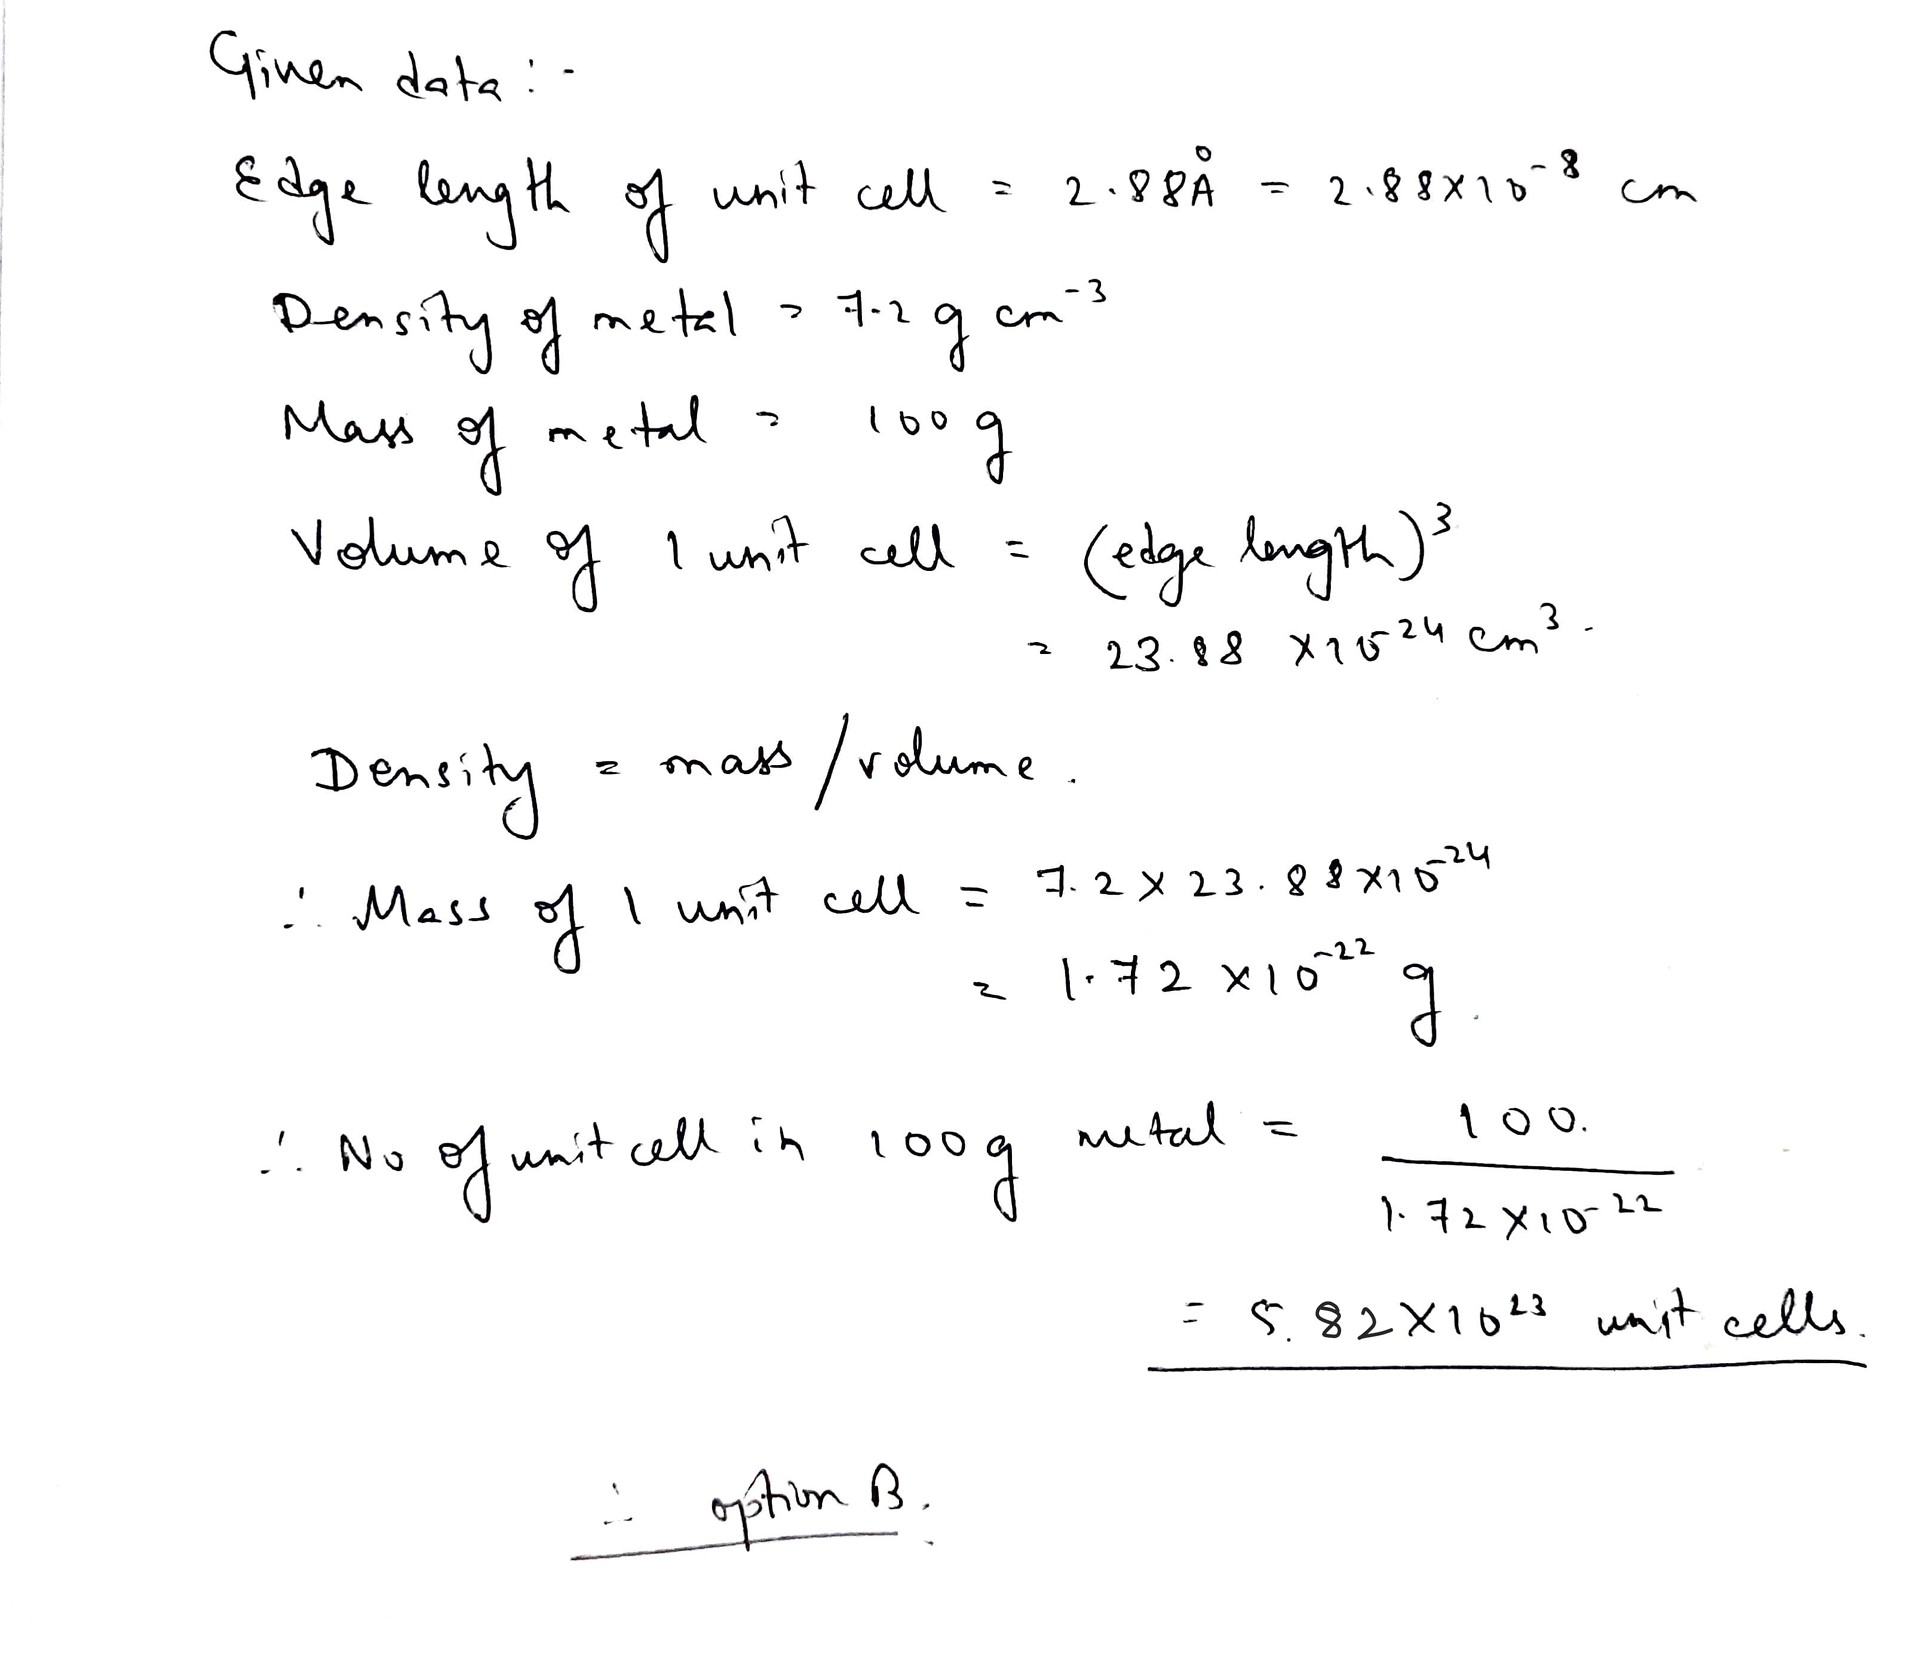 Given data :-
Edge length of unit cell = 2.88Å = 2.88×10⁻⁸ cm
Density of metal = 7.2 g cm⁻³
Mass of metal = 100 g
Volume of 1 unit cell = (edge length)³
= 23.88 ×10⁻²⁴ cm³.
Density = mass / volume.
∴ Mass of 1 unit cell = 7.2 × 23.88 ×10⁻²⁴
= 1.72 ×10⁻²² g.
∴ No of unit cell in 100 g metal = 100.
1.72 ×10⁻²²
= 5.82×10²³ unit cells.
∴ option B.